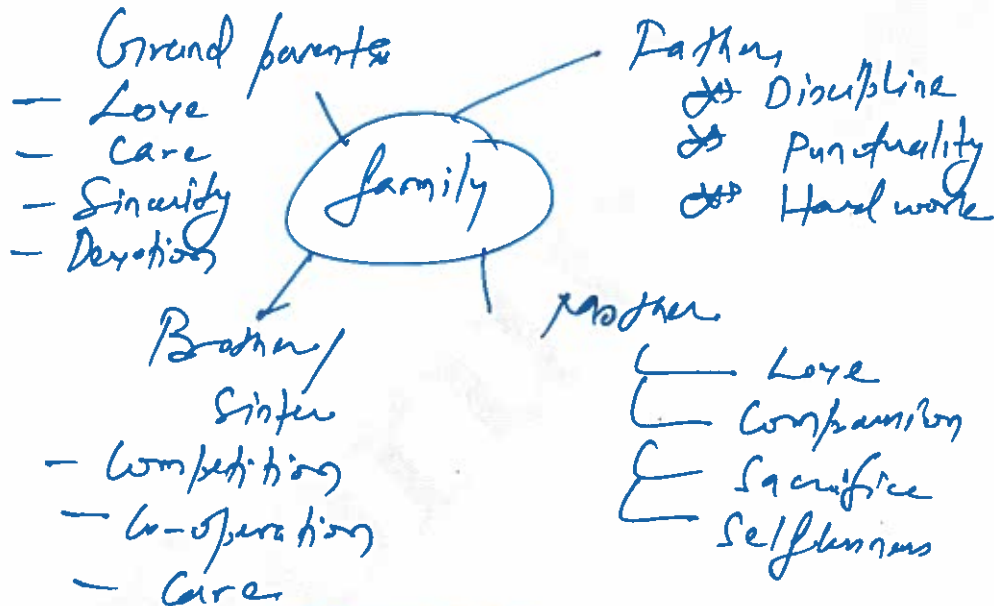 Grand parents
- Love
- Care
- Sincerity
- Devotion
family
Father
Discipline
Punctuality
Hard work
Brother/
Sister
- Competition
- Co-operation
- Care
Mother
Love
Compassion
Sacrifice
Selflessness